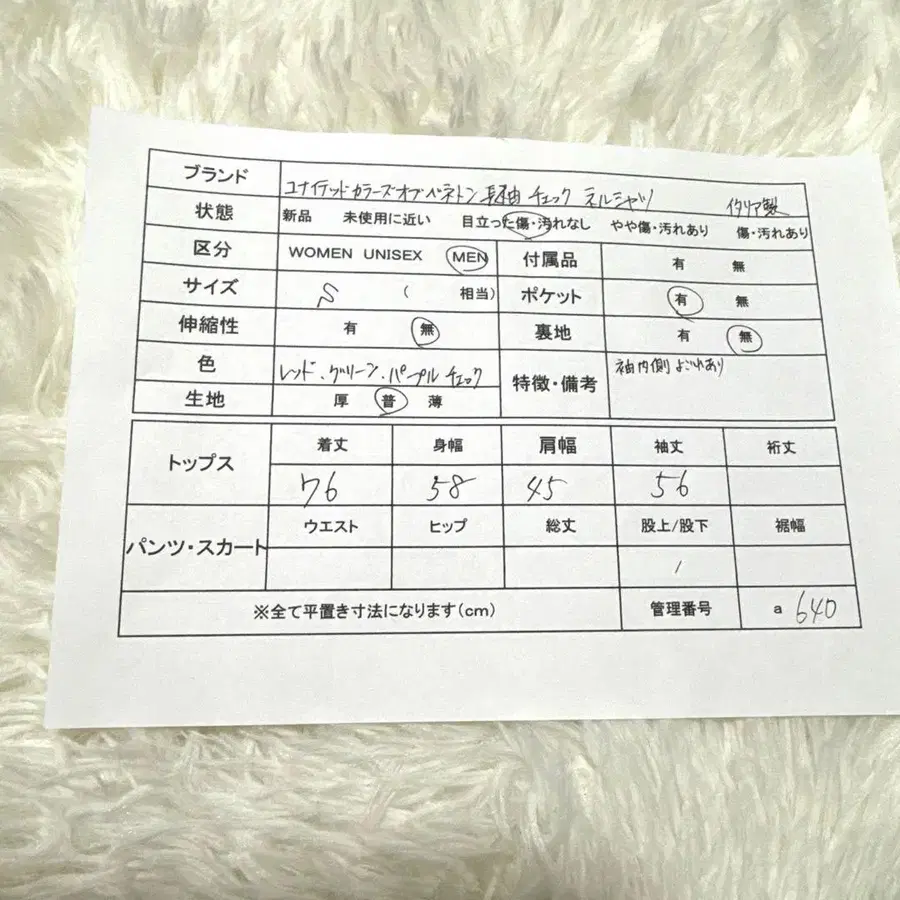 ブランド ユナイテッドカラーズオブベネトン 長袖 チェック ネルシャツ イタリア製
状態 新品 未使用に近い 目立った傷・汚れなし やや傷・汚れあり 傷・汚れあり
区分 WOMEN UNISEX MEN 付属品 有 無
サイズ S ( 相当) ポケット 有 無
伸縮性 有 無 裏地 有 無
色 レッド・グリーン・パープル チェック 特徴・備考 袖内側よごれあり
生地 厚 普 薄
トップス 着丈 身幅 肩幅 袖丈 裄丈
76 58 45 56
パンツ・スカート ウエスト ヒップ 総丈 股上/股下 裾幅
/
※全て平置き寸法になります(cm) 管理番号 a 640